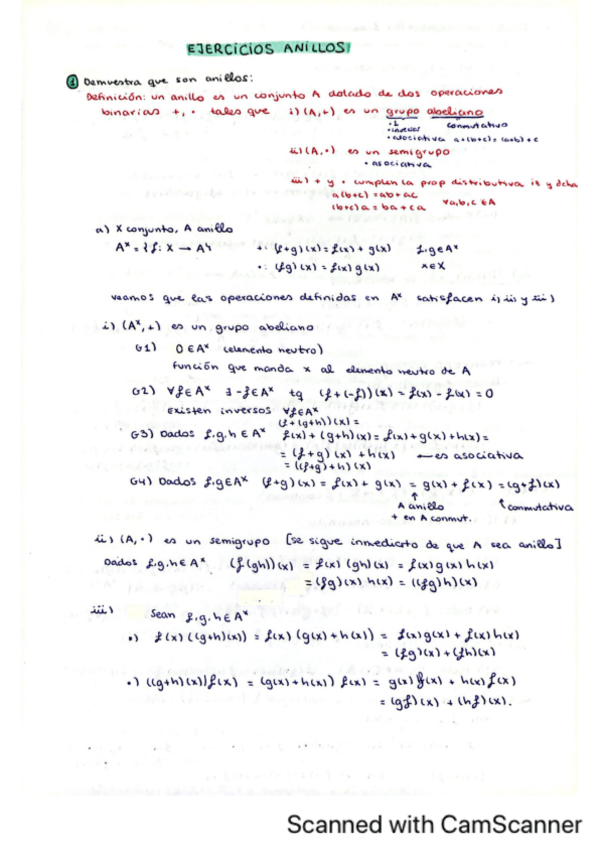 EJERCICIOS ANILLOS
1 Demuestra que son anillos:
Definición: un anillo es un conjunto A dotado de dos operaciones
binarias +, · tales que i) (A,+) es un grupo abeliano
conmutativo
· asociativa a+(b+c) = (a+b)+c
ii) (A, ·) es un semigrupo
· asociativa
iii) + y · cumplen la prop distributiva iz y dcha
a(b+c) = ab + ac
(b+c)a = ba + ca ∀a,b,c ∈ A
a) X conjunto, A anillo
Aˣ = {f: X → A} +: (f+g)(x) = f(x) + g(x) f,g ∈ Aˣ
·: (fg)(x) = f(x) g(x) x ∈ X
veamos que las operaciones definidas en Aˣ satisfacen i) ii) y iii)
i) (Aˣ,+) es un grupo abeliano
G1) 0 ∈ Aˣ (elemento neutro)
función que manda x al elemento neutro de A
G2) ∀f ∈ Aˣ ∃ -f ∈ Aˣ tq (f + (-f))(x) = f(x) - f(x) = 0
Existen inversos ∀f ∈ Aˣ
(f + (g+h))(x) =
G3) Dados f,g,h ∈ Aˣ f(x) + (g+h)(x) = f(x) + g(x) + h(x) =
= (f+g)(x) + h(x) ← es asociativa
= ((f+g)+h)(x)
G4) Dados f,g ∈ Aˣ (f+g)(x) = f(x) + g(x) = g(x) + f(x) = (g+f)(x)
A anillo conmutativa
+ en A conmut.
ii) (A, ·) es un semigrupo [se sigue inmediato de que A sea anillo]
Dados f,g,h ∈ Aˣ (f(gh))(x) = f(x) (gh)(x) = f(x) g(x) h(x)
= (fg)(x) h(x) = ((fg)h)(x)
iii) Sean f,g,h ∈ Aˣ
·) f(x) ((g+h)(x)) = f(x) (g(x) + h(x)) = f(x)g(x) + f(x)h(x)
= (fg)(x) + (fh)(x)
·) ((g+h)(x)) f(x) = (g(x) + h(x)) f(x) = g(x) f(x) + h(x) f(x)
= (gf)(x) + (hf)(x).
Scanned with CamScanner